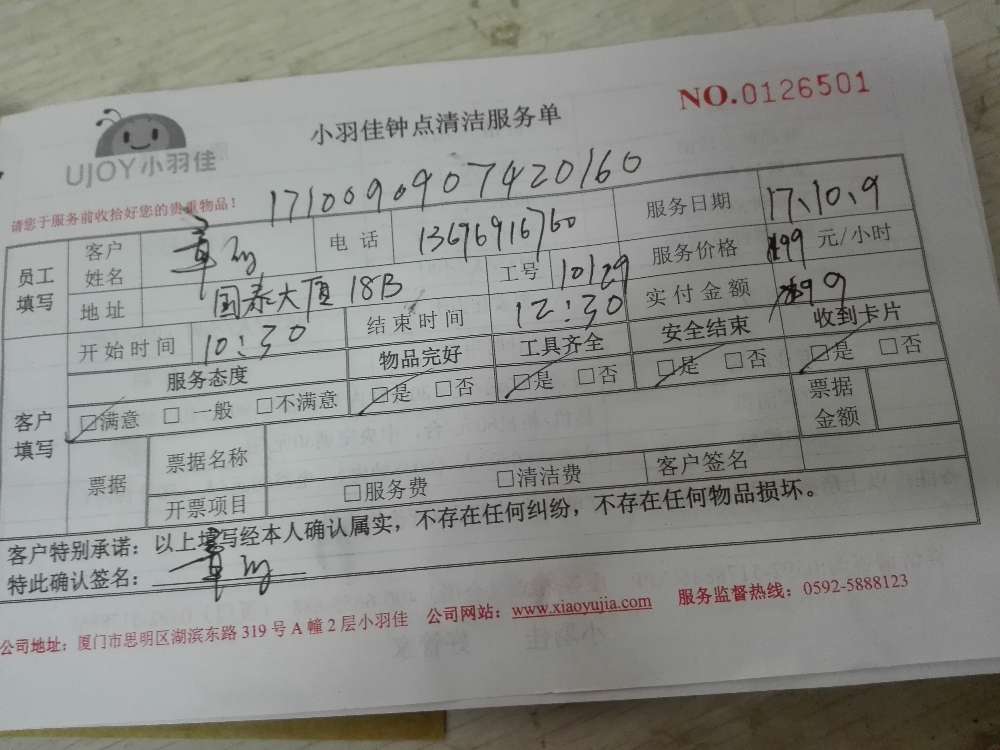 NO.0126501
UJOY小羽佳
小羽佳钟点清洁服务单
请您于服务前收拾好您的贵重物品！
1710090907420160
员工填写
客户姓名 章
电话 13676916760
服务日期 17、10、9
地址 国泰大厦 18B
工号 10129
服务价格 99 元/小时
开始时间 10:30
结束时间 12:30
实付金额 99
客户填写
服务态度 物品完好 工具齐全 安全结束 收到卡片
□满意 □一般 □不满意 □是 □否 □是 □否 □是 □否 □是 □否
票据 票据名称 票据金额
开票项目 □服务费 □清洁费 客户签名
客户特别承诺：以上填写经本人确认属实，不存在任何纠纷，不存在任何物品损坏。
特此确认签名： 章
公司地址：厦门市思明区湖滨东路 319 号 A 幢 2 层小羽佳 公司网站：www.xiaoyujia.com 服务监督热线：0592-5888123